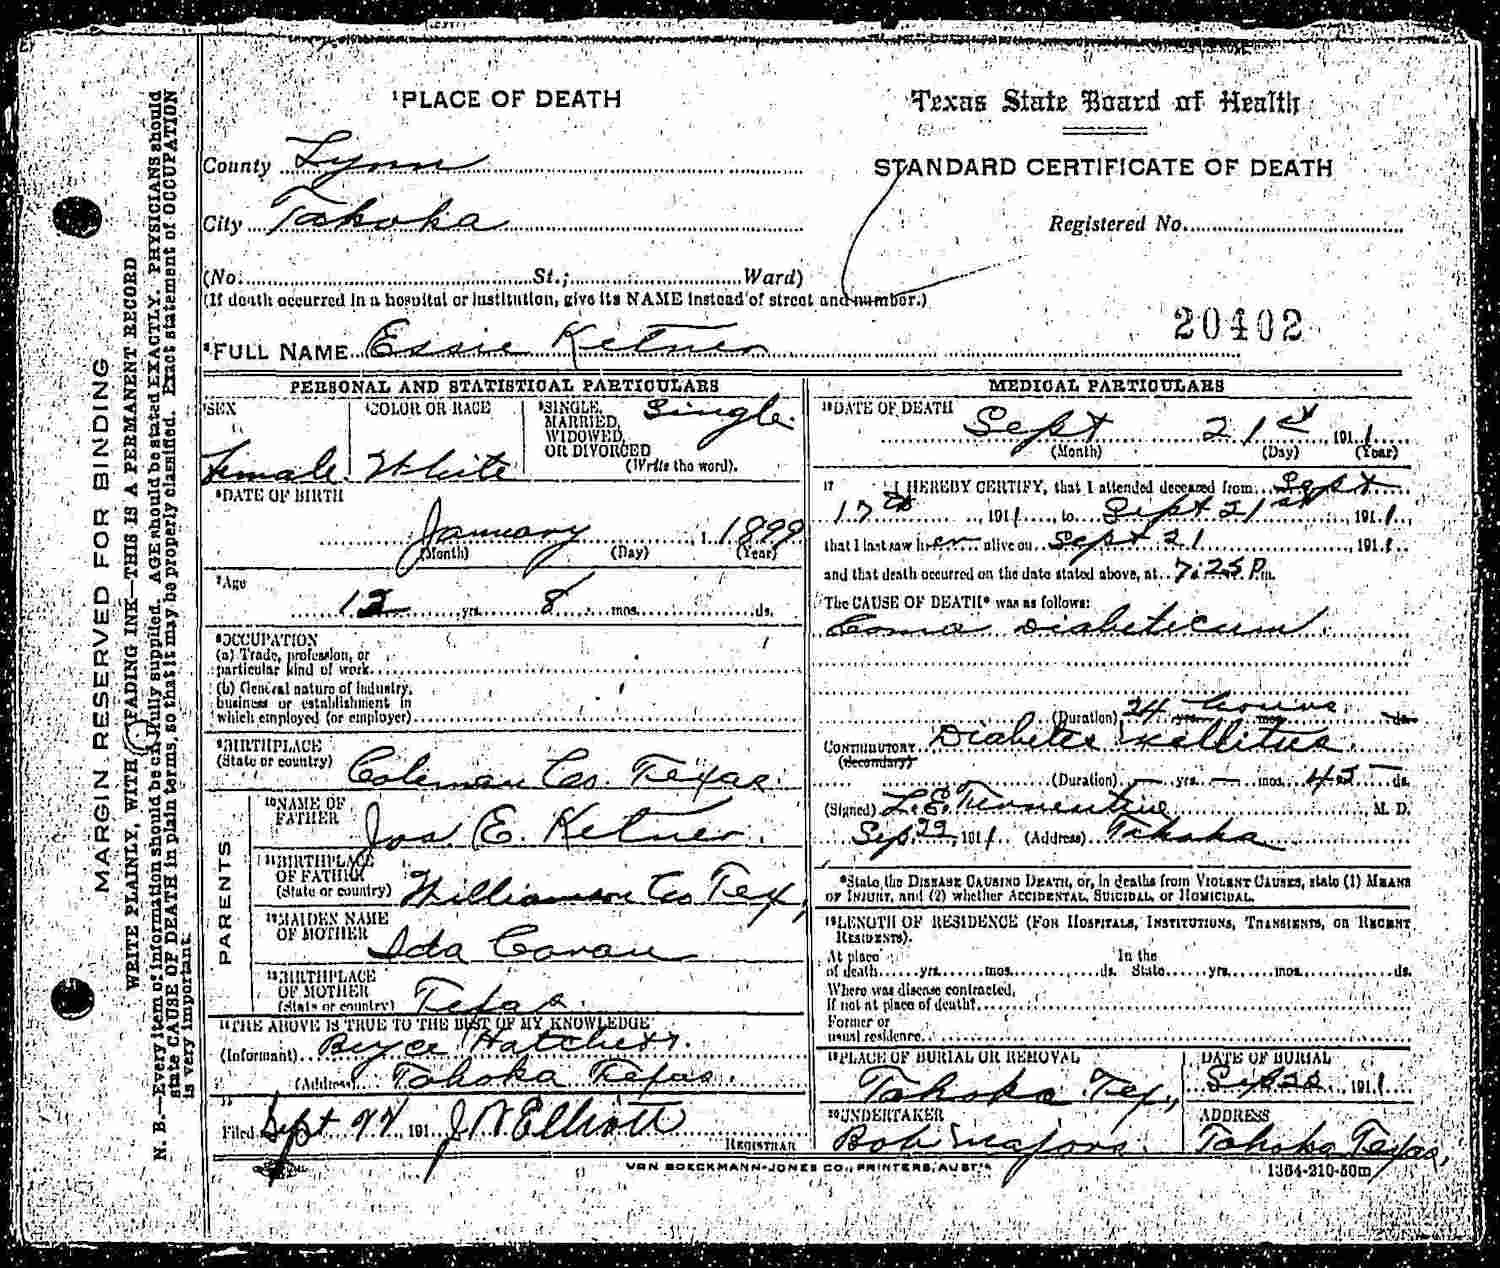 MARGIN RESERVED FOR BINDING
WRITE PLAINLY, WITH UNFADING INK—THIS IS A PERMANENT RECORD
N. B.—Every item of information should be carefully supplied. AGE should be stated EXACTLY. PHYSICIANS should
state CAUSE OF DEATH in plain terms, so that it may be properly classified. Exact statement of OCCUPATION
is very important.
1 PLACE OF DEATH
County Lynn
City Tahoka
(No. St.; Ward)
(If death occurred in a hospital or institution, give its NAME instead of street and number.)
Texas State Board of Health
STANDARD CERTIFICATE OF DEATH
Registered No.
20402
2 FULL NAME Essie Ketner
PERSONAL AND STATISTICAL PARTICULARS
SEX
Female
COLOR OR RACE
White
5 SINGLE, MARRIED, WIDOWED, OR DIVORCED
Single
(Write the word).
6 DATE OF BIRTH
January 1899
(Month) (Day) (Year)
7 Age
12 yrs. 8 mos. ds.
8 OCCUPATION
(a) Trade, profession, or
particular kind of work
(b) General nature of industry,
business or establishment in
which employed (or employer)
9 BIRTHPLACE
(State or country)
Coleman Co. Texas
PARENTS
10 NAME OF FATHER
Jos. E. Ketner.
11 BIRTHPLACE OF FATHER
(State or country)
Williamson Co Tex,
12 MAIDEN NAME OF MOTHER
Ida
13 BIRTHPLACE OF MOTHER
(State or country)
Texas.
14 THE ABOVE IS TRUE TO THE BEST OF MY KNOWLEDGE
(Informant)
(Address) Tahoka Texas.
15
Filed Sept 191 J N Elliott
REGISTRAR
MEDICAL PARTICULARS
16 DATE OF DEATH
Sept 21st, 1911
(Month) (Day) (Year)
17 I HEREBY CERTIFY, that I attended deceased from Sept
17th, 1911, to Sept 21st 1911,
that I last saw her alive on Sept 21 1911,
and that death occurred on the date stated above, at 7:25 P.m.
The CAUSE OF DEATH* was as follows:
Coma Diabeticum
(Duration) 24 hours yrs. mos. ds.
CONTRIBUTORY Diabetes Mellitus
(Secondary)
(Duration) — yrs. — mos. 45 ds.
(Signed) L. E. Turrentine M. D.
Sep. 22, 1911. (Address) Tahoka
*State the DISEASE CAUSING DEATH, or, in deaths from VIOLENT CAUSES, state (1) MEANS
OF INJURY, and (2) whether ACCIDENTAL, SUICIDAL, or HOMICIDAL.
18 LENGTH OF RESIDENCE (FOR HOSPITALS, INSTITUTIONS, TRANSIENTS, OR RECENT
RESIDENTS).
At place In the
of death yrs. mos. ds. State yrs. mos. ds.
Where was disease contracted,
if not at place of death?
Former or
usual residence
19 PLACE OF BURIAL OR REMOVAL
Tahoka Tex,
DATE OF BURIAL
Sep 1911
20 UNDERTAKER
Bob Majors.
ADDRESS
Tahoka Texas,
VON BOECKMANN-JONES CO., PRINTERS, AUSTIN
1364-210-50m